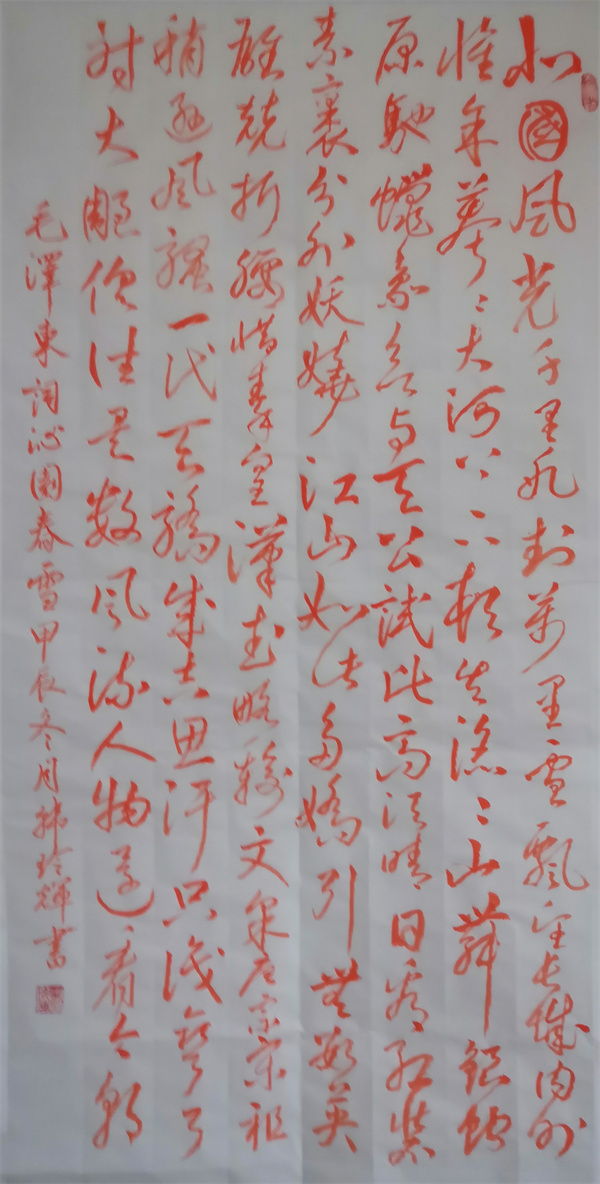 北國風光千里冰封萬里雪飄望長城内外
惟余莽〻大河上下頓失滔〻山舞銀蛇
原馳蠟象欲与天公試比高須晴日看紅裝
素裹分外妖嬈江山如此多嬌引無數英
雄競折腰惜秦皇漢武略輸文采唐宗宋祖
稍遜風騷一代天驕成吉思汗只識彎弓
射大雕俱往矣數風流人物還看今朝
毛澤東詞沁園春雪甲辰冬月輝書